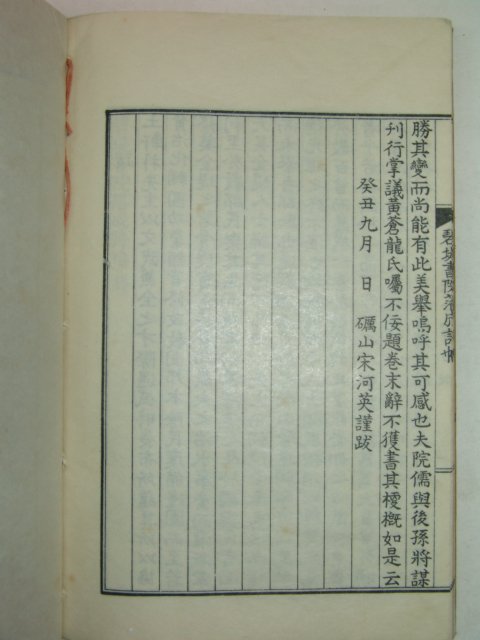 勝其變而尚能有此美舉嗚呼其可感也夫院儒與後孫將謀
刊行掌議黃蒼龍氏囑不佞題卷末辭不獲書其梗概如是云
癸丑九月　日　礪山宋河英謹跋